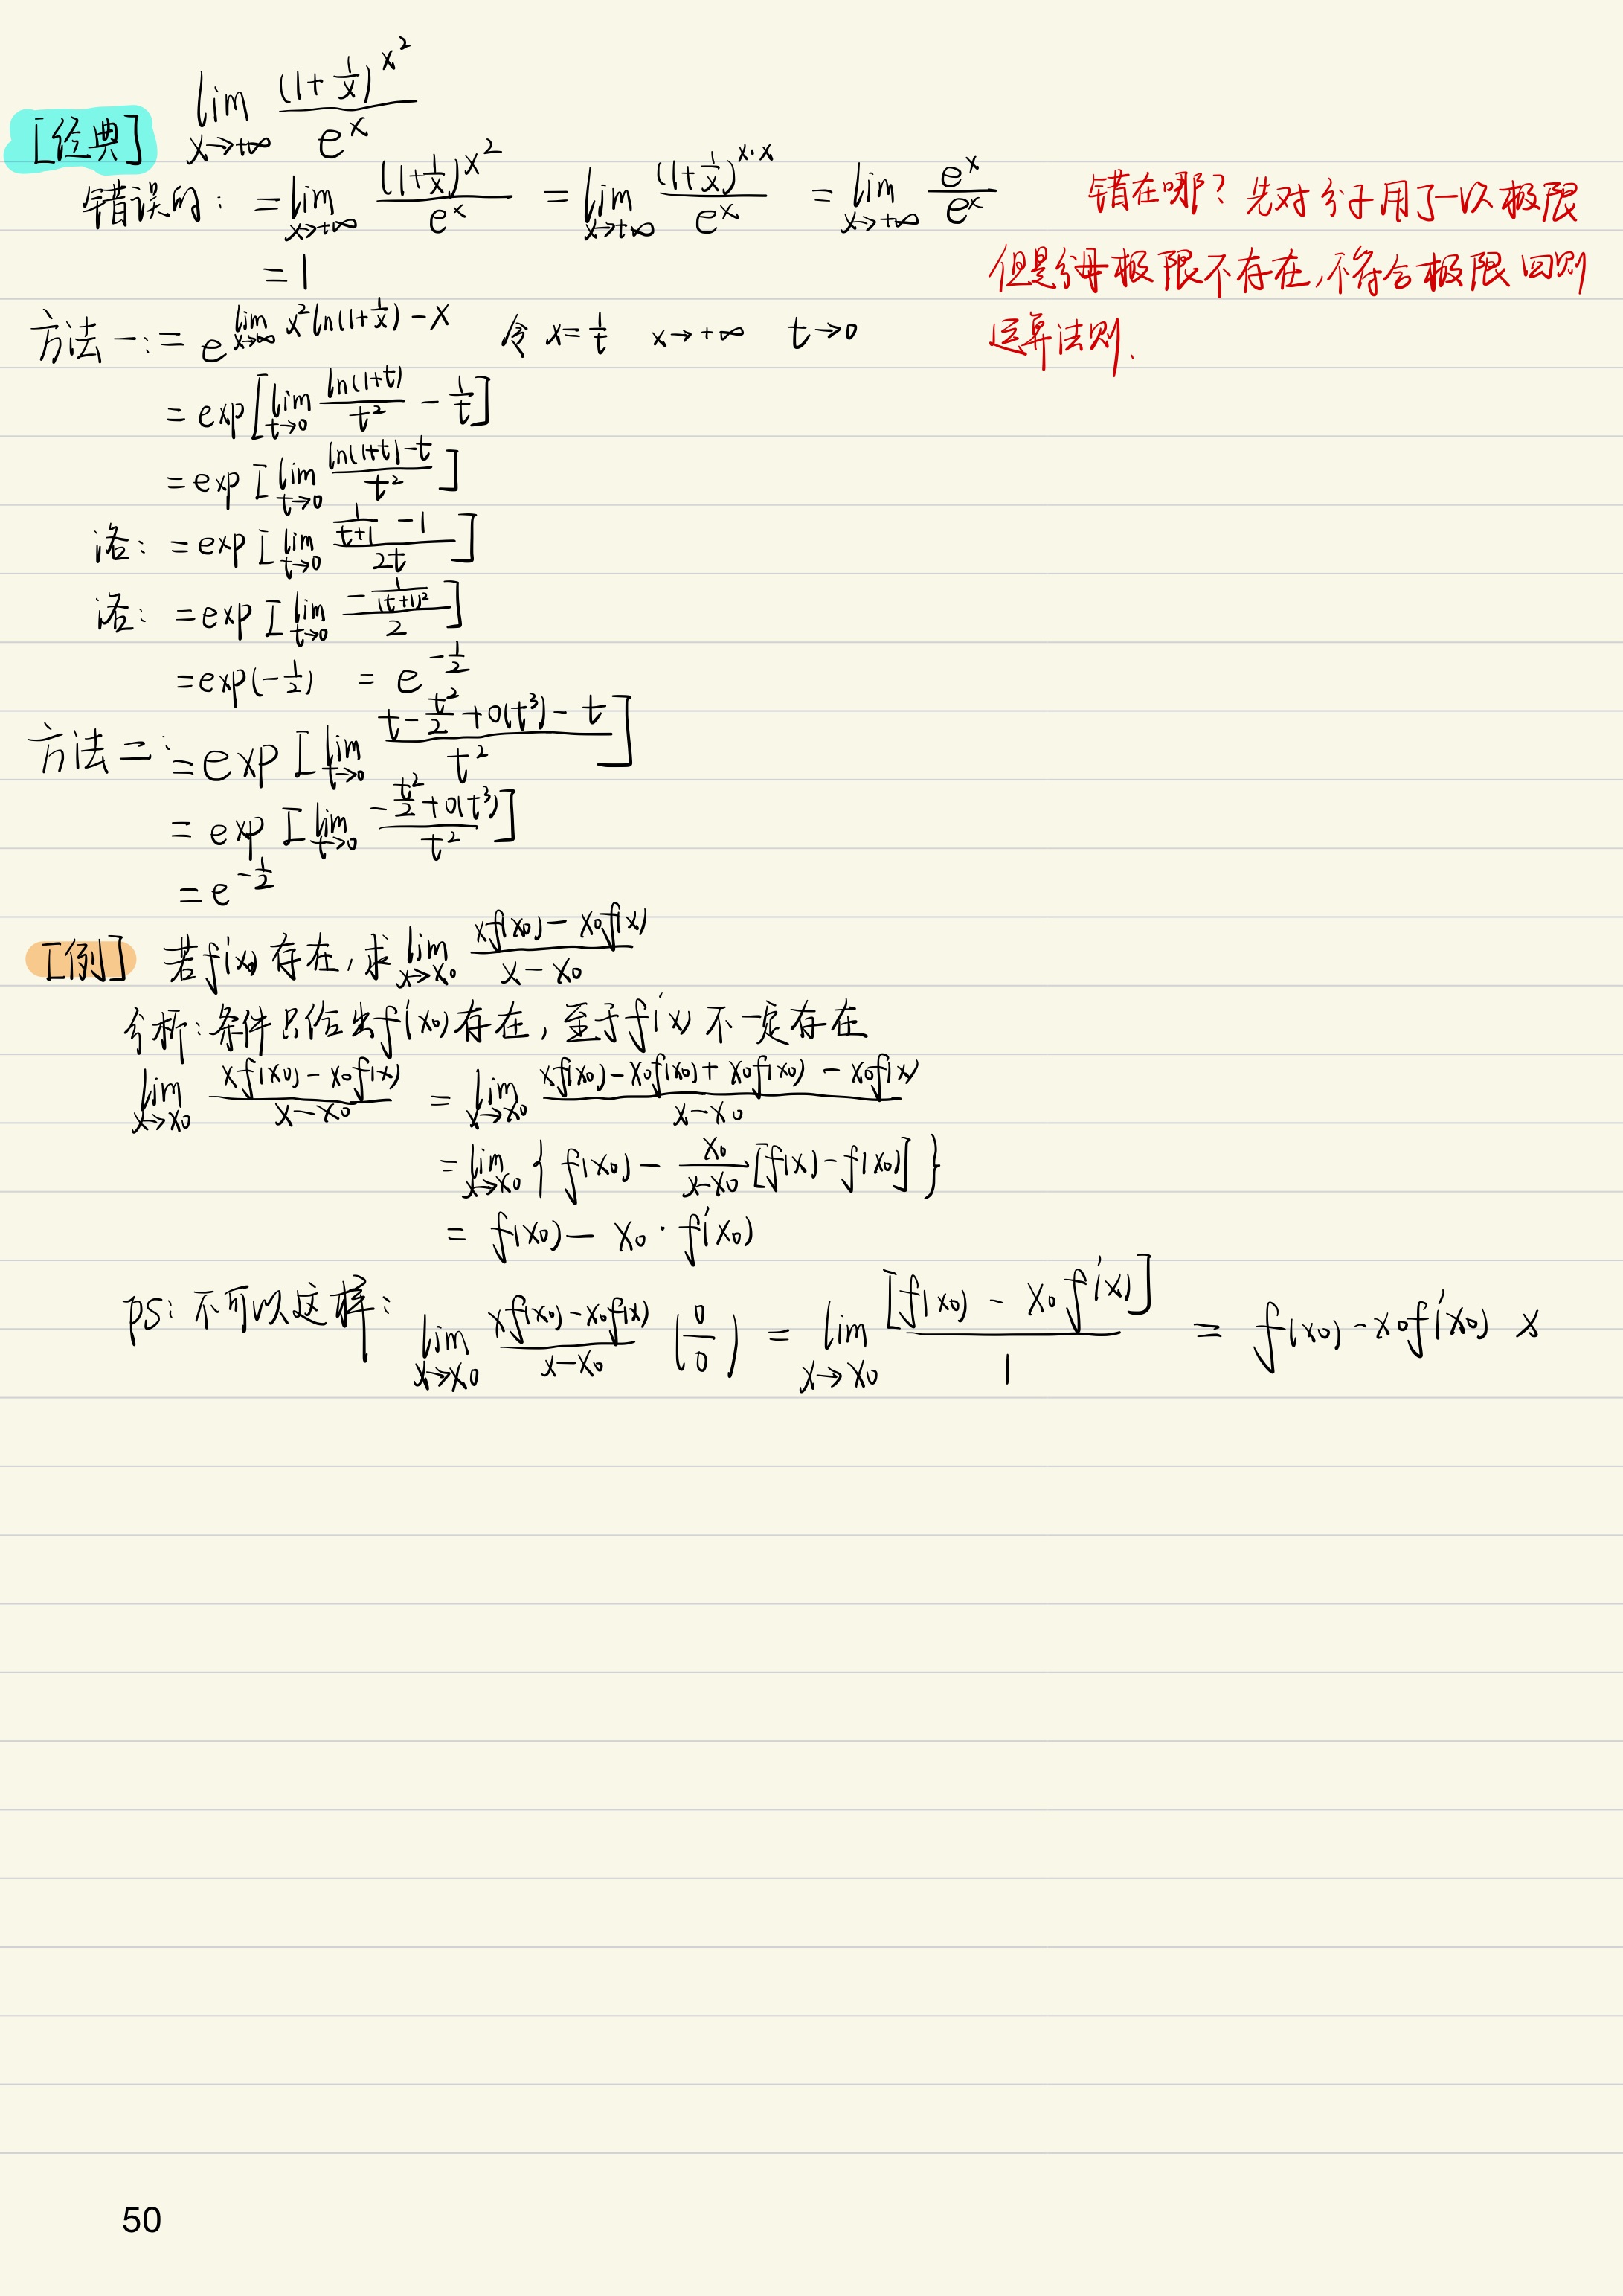 [经典] lim_{x→+∞} (1+1/x)^{x²} / e^x
错误的: = lim_{x→+∞} (1+1/x)^{x²} / e^x = lim_{x→+∞} (1+1/x)^{x·x} / e^x = lim_{x→+∞} e^x / e^x
= 1
错在哪? 先对分子用了一次极限
但是分母极限不存在,不符合极限四则
运算法则.
方法一: = e^{lim_{x→∞} x² ln(1+1/x) - x} 令 x = 1/t x→+∞ t→0
= exp[lim_{t→0} ln(1+t)/t² - 1/t]
= exp[lim_{t→0} (ln(1+t)-t)/t²]
洛: = exp[lim_{t→0} (1/(t+1) - 1)/2t]
洛: = exp[lim_{t→0} (-1/(t+1)²)/2]
= exp(-1/2) = e^{-1/2}
方法二: = exp[lim_{t→0} (t - t²/2 + o(t³) - t)/t²]
= exp[lim_{t→0} (-t²/2 + o(t³))/t²]
= e^{-1/2}
[例] 若f'(x₀)存在,求 lim_{x→x₀} (xf(x₀) - x₀f(x))/(x - x₀)
分析:条件只给出f'(x₀)存在,至于f'(x)不一定存在
lim_{x→x₀} (xf(x₀) - x₀f(x))/(x-x₀) = lim_{x→x₀} (xf(x₀) - x₀f(x₀) + x₀f(x₀) - x₀f(x))/(x-x₀)
= lim_{x→x₀} { f(x₀) - x₀/(x-x₀) [f(x) - f(x₀)] }
= f(x₀) - x₀·f'(x₀)
ps: 不可以这样: lim_{x→x₀} (xf(x₀) - x₀f(x))/(x-x₀) (0/0) = lim_{x→x₀} [f(x₀) - x₀f'(x)]/1 = f(x₀) - x₀f'(x₀) ×
50